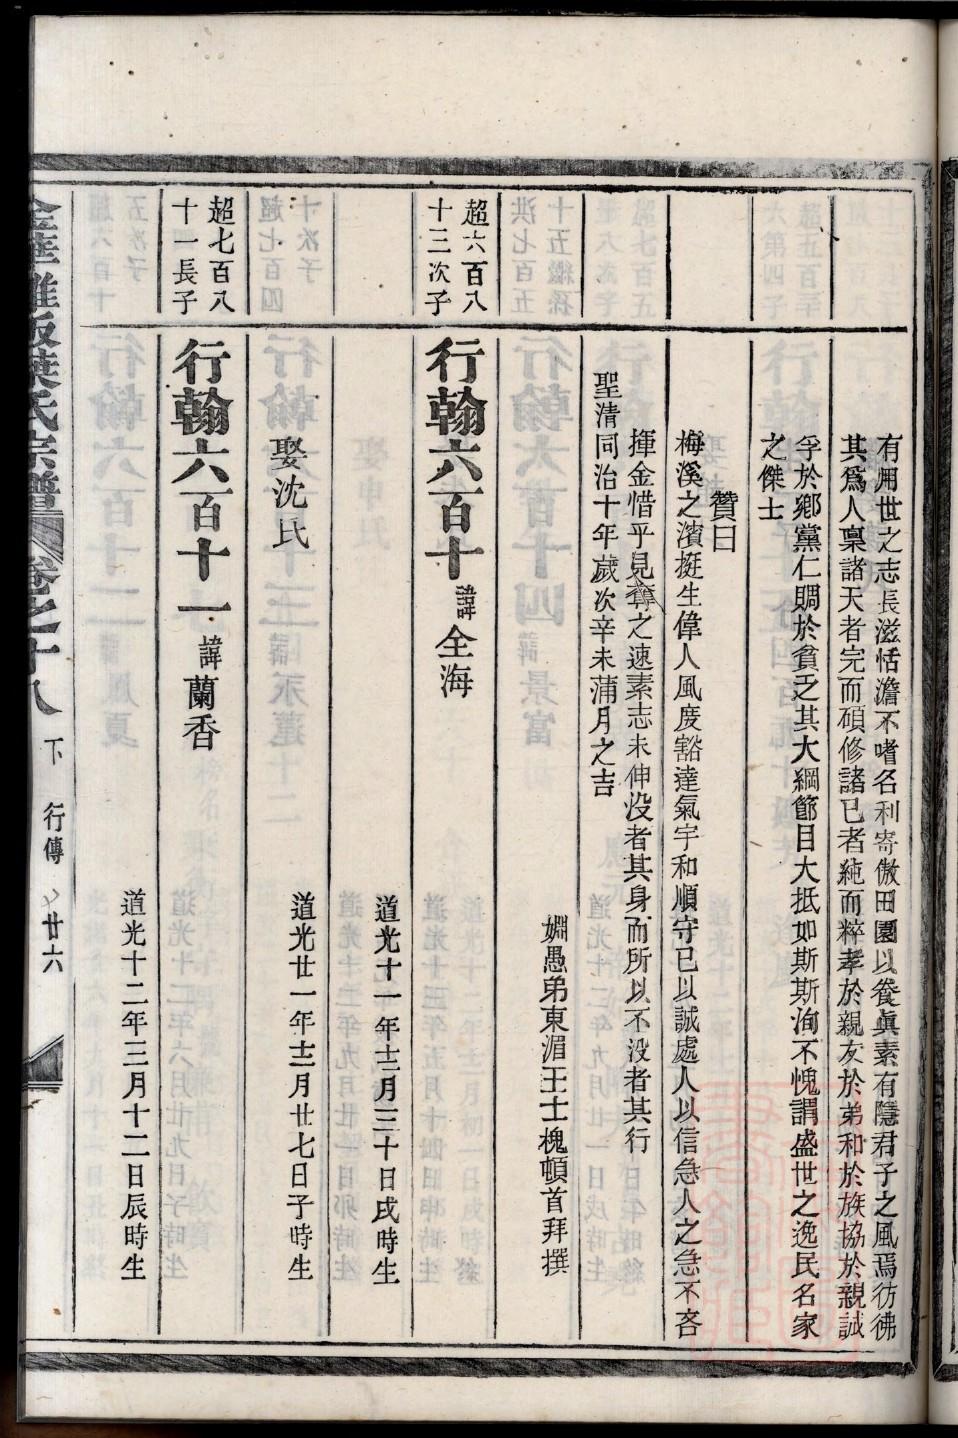 有用世之志長滋恬澹不嗜名利寄傲田園以養眞素有隱君子之風焉彷彿
其爲人稟諸天者完而碩修諸已者純而粹孝於親友於弟和於族協於親誠
孚於鄉黨仁賙於貧乏其大綱節目大抵如斯斯洵不愧謂盛世之逸民名家
之傑士
贊曰
梅溪之濱挺生偉人風度豁達氣宇和順守已以誠處人以信急人之急不吝
揮金惜乎見奪之速素志未伸没者其身而所以不没者其行
聖清同治十年歲次辛未蒲月之吉
姻愚弟東湄王士槐頓首拜撰
超六百八
十三次子
行翰六百十 諱全海
道光十一年十二月三十日戌時生
娶沈氏
道光廿一年十二月廿七日子時生
超七百八
十一長子
行翰六百十一 諱蘭香
道光十二年三月十二日辰時生
葉氏宗譜 卷之十八 下 行傳 廿六